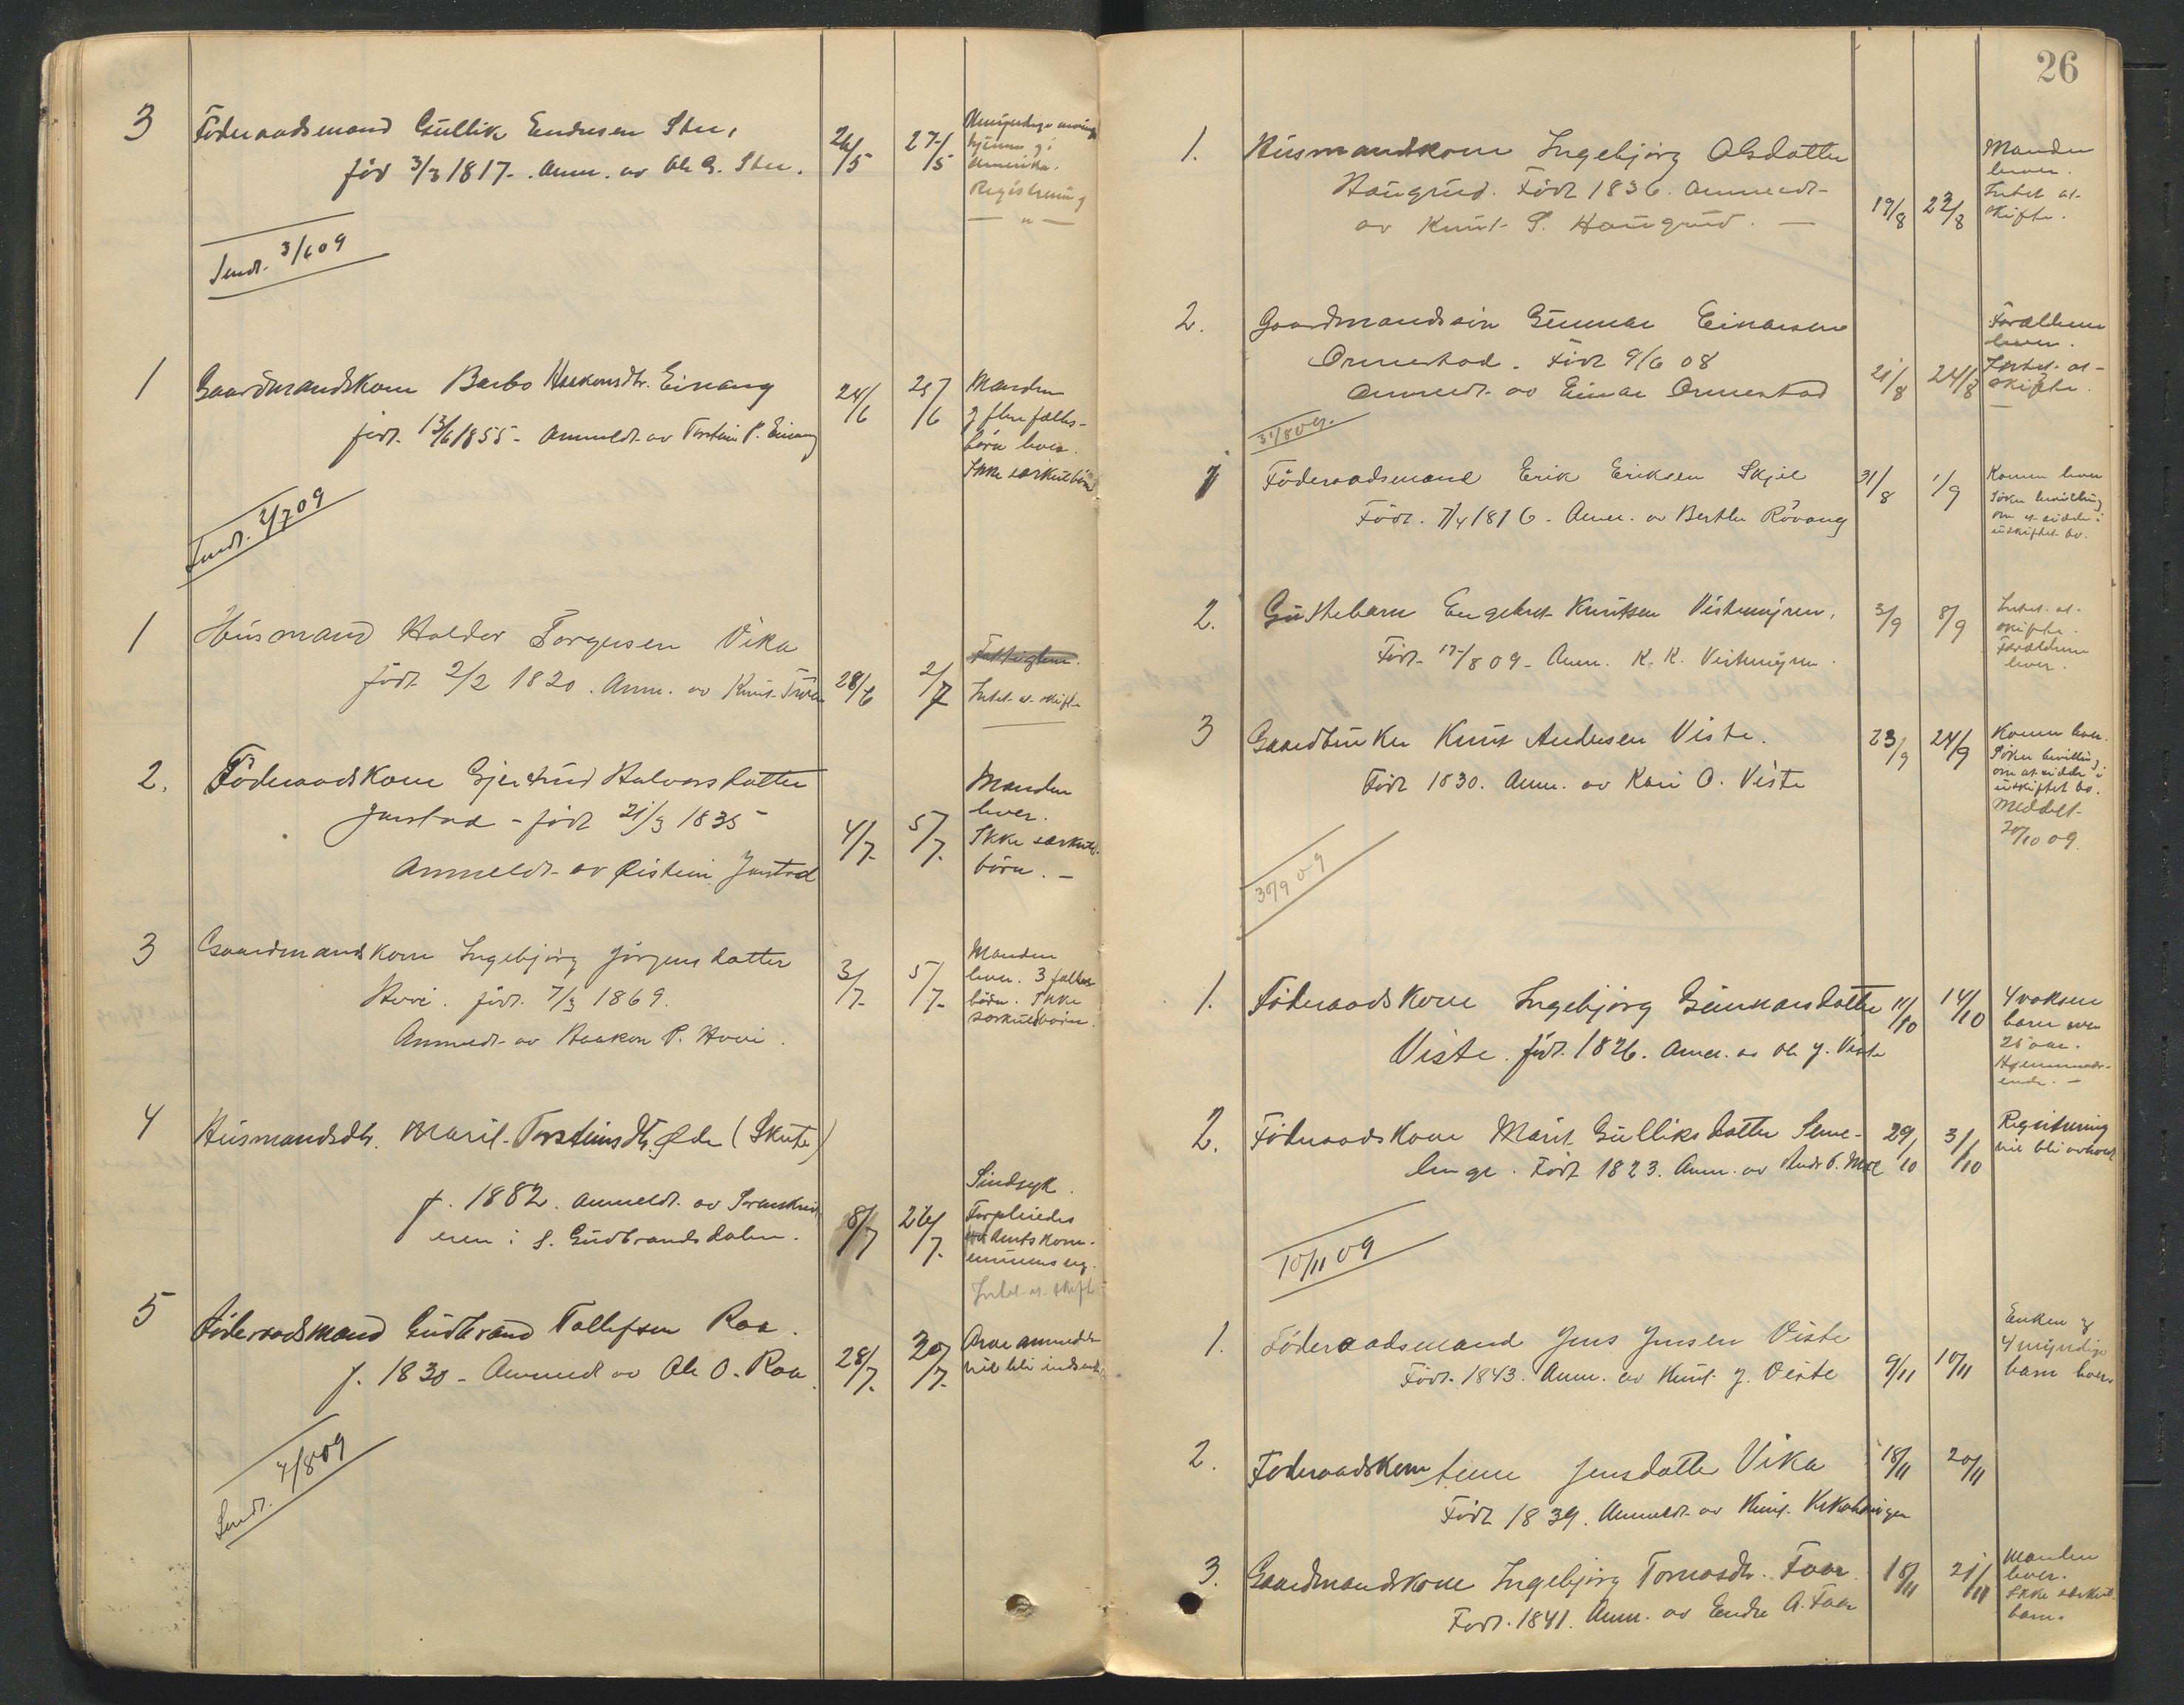 3 Föderaadsmand Gullik Endresen Ste,
fød 3/3 1817. Anm. av Ole G. Ste. 26/5 27/5
Amerika.
Registrering
— " —
Sendt. 3/6 09
1 Gaardmandskone Barbo Haakonsdtr. Einang
født. 13/6 1855 - Anmeldt av Torstein P. Einang 24/6 25/6
Manden
og flere fælles-
børn lever.
Ikke særkulsbörn
Sendt. 2/7 09
1 Husmand Haldor Torgersen Vika
født 2/2 1820. Anm. av Knut 28/6 2/7
Intet at skifte
2. Föderaadskone Gjertrud Halvorsdatter
Jarstad - født 21/3 1835
Anmeldt av Øistein Jarstad 4/7. 5/7.
Manden
lever.
Ikke særkuls-
børn. —
3 Gaardmandskone Ingebjörg Jörgensdatter
Hovi. född. 7/3 1869.
Anmeldt av Haakon P. Hovi. 3/7. 5/7.
Manden
lever. 3 fælles
börn. Ikke
særkulsbörn.
4 Husmandsdtr. Marit Torsteinsdtr. Øde (Skute)
f. 1882. Anmeldt. av Sorenskriv
eren i S. Gudbrandsdalen. 8/7 26/7.
Sindsyk.
Forpleiedes
Amtskom-
munens
Intet at skifte
5 Föderaadsmand Gudbrand Tollefsen Roa.
f. 1830 - Anmeld av Ole O. Roa. 28/7. 30/7.
vil bli indsendt
Sendt. 4/8 09
26
1. Husmandskone Ingebjörg Olsdatter
Haugrud. Född 1836. Anmeldt
av Knut S. Haugrud. — 19/8 22/8
Manden
lever.
Intet at
skifte.
2. Gaardmandssön Gunnar Einarsen
Ormestad. Född 9/6 08
Anmeldt av Einar Ormestad 21/8 24/8
Forældrene
lever.
Intet at
skifte.
31/8 09.
1 Föderaadsmand Erik Eriksen Skjel
Född. 7/4 1816. Anm. av Berthe Rövang 31/8 1/9
Konen lever
Söker bevilling
om at sidde i
uskiftet bo.
2. Guttebarn Engebret Knutsen Vistemyren,
Född. 17/8 09. Anm. K. K. Vistemyren. 3/9 8/9
Intet at
skifte.
Forældrene
lever.
3 Gaardbruker Knut Andersen Viste.
Född 1830. Anm. av Kari O. Viste 23/9 24/9
Konen lever.
Söker bevilling
om at sidde i
uskiftet bo.
Meddelt
20/10 09.
30/9 09
1. Föderaadskone Ingebjörg Gunnarsdatter
Viste. född. 1826. Anm. av Ole J. Viste 11/10 14/10
4 voksne
barn over
25 aar.
2. Föderaadskone Marit Gulliksdatter Seme-
lenge. Född 1823. Anm. av And. 29/10 31/10
Registrering
vil bli avholdt
10/11 09
1. Föderaadsmand Jens Jensen Viste
Född. 1843. Anm. av Knut J. Viste 9/11 10/11
Enken og
4 myndige
barn lever
2. Föderaadskone Jensdatter Vika 18/11 20/11
Född 1839. Anmeldt av Knut
3. Gaardmandskone Ingebjörg Tomasdtr. Foss 18/11 21/11
Född. 1841. Anm. av Endre A. Foss
Manden
lever.
Ikke særkuls
barn.